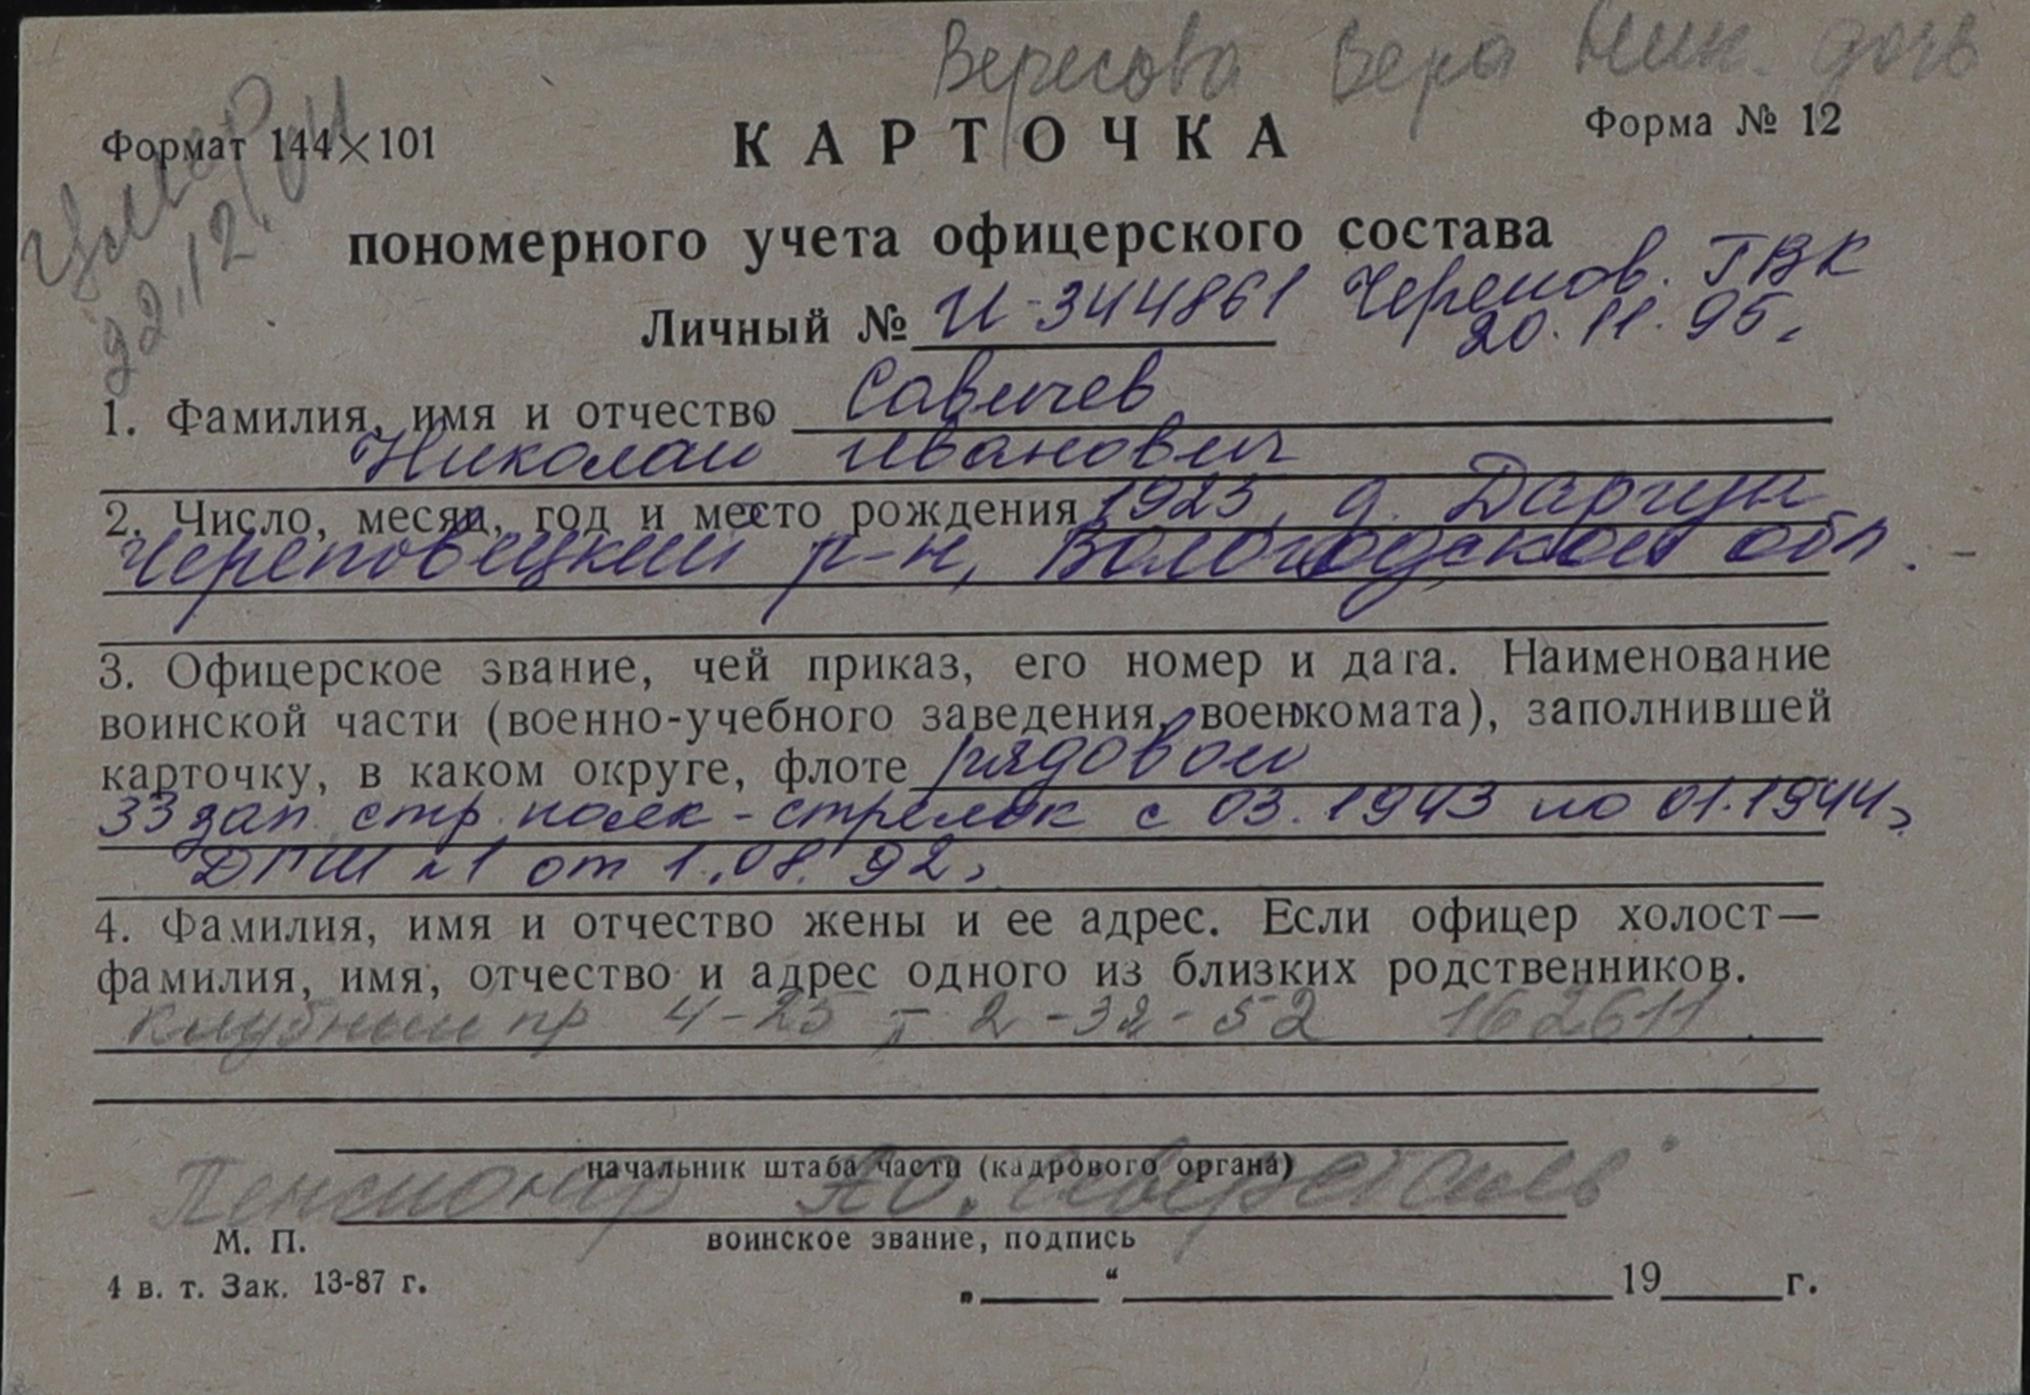 Вересова Вера Ник. дочь
Умер
22.12.04
Формат 144×101
КАРТОЧКА
Форма № 12
пономерного учета офицерского состава
Личный № И-344861 Черепов. ГВК
20.11.95,
1. Фамилия, имя и отчество Савичев
Николай Иванович
2. Число, месяц, год и место рождения 1925, д. Даргун
Череповецкий р-н, Вологодской обл.
3. Офицерское звание, чей приказ, его номер и дата. Наименование
воинской части (военно-учебного заведения, военкомата), заполнившей
карточку, в каком округе, флоте рядовой
33 зап. стр. полк - стрелок с 03.1943 по 01.1944,
ДГШ №1 от 1.08.92,
4. Фамилия, имя и отчество жены и ее адрес. Если офицер холост—
фамилия, имя, отчество и адрес одного из близких родственников.
Клубный пр 4-25 т 2-32-52 162611
начальник штаба части (кадрового органа)
Пенсионер АО. Северсталь
воинское звание, подпись
М. П.
4 в. т. Зак. 13-87 г.
„ “ 19 г.